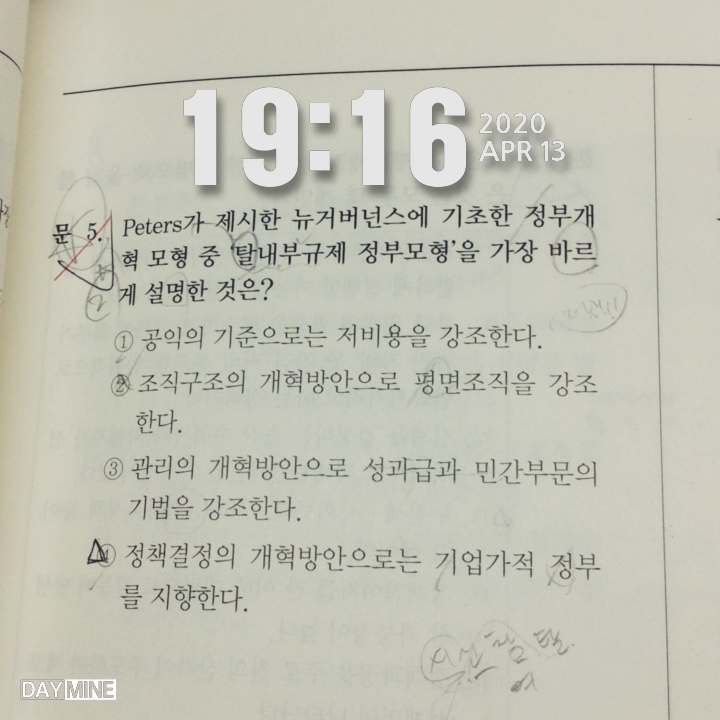 19:16
2020
APR 13
문 5. Peters가 제시한 뉴거버넌스에 기초한 정부개
혁 모형 중 '탈내부규제 정부모형'을 가장 바르
게 설명한 것은?
① 공익의 기준으로는 저비용을 강조한다.
② 조직구조의 개혁방안으로 평면조직을 강조
한다.
③ 관리의 개혁방안으로 성과급과 민간부문의
기법을 강조한다.
④ 정책결정의 개혁방안으로는 기업가적 정부
를 지향한다.
DAYMINE